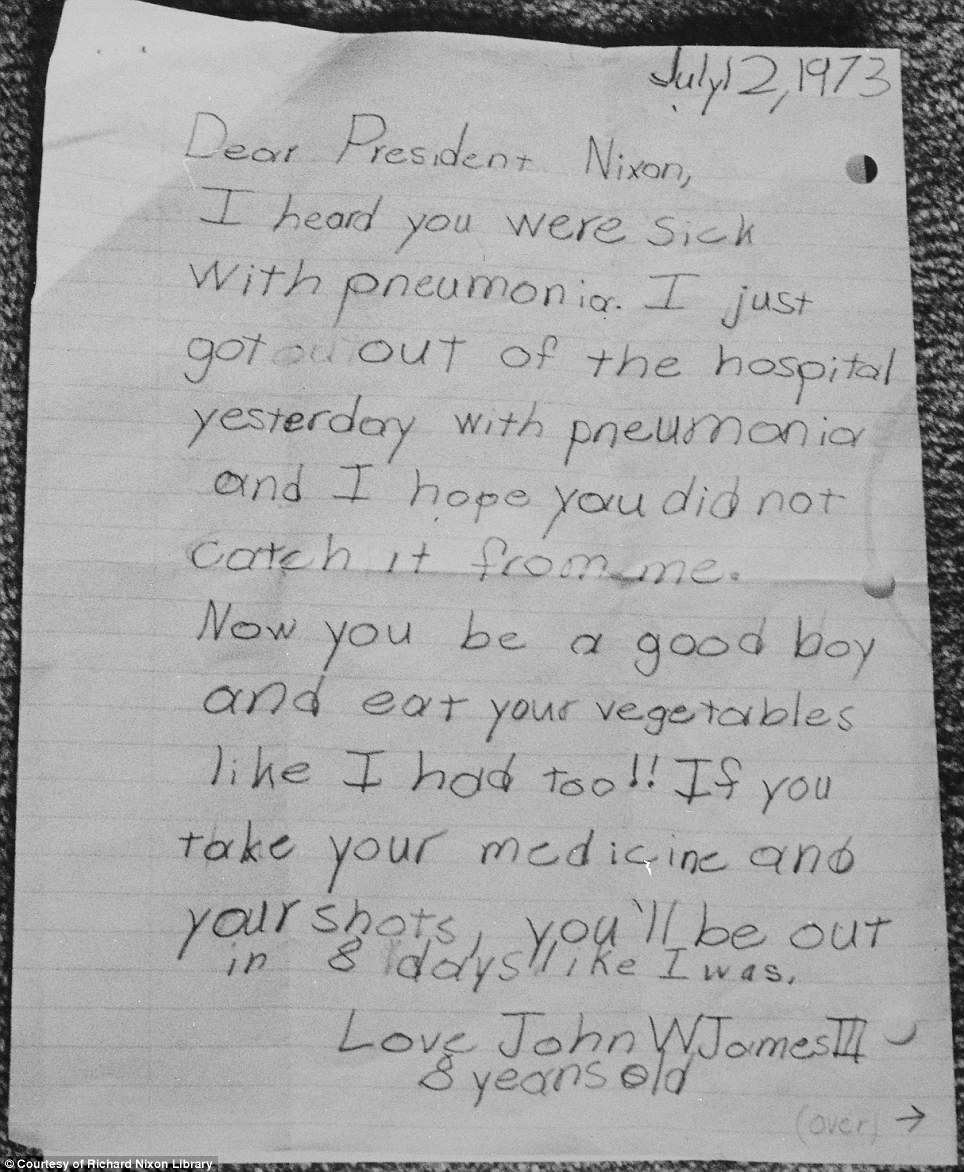 July 12, 1973
Dear President Nixon,
I heard you were sick
with pneumonia. I just
got ou out of the hospital
yesterday with pneumonia
and I hope you did not
catch it from me.
Now you be a good boy
and eat your vegetables
like I had too!! If you
take your medicine and
your shots, you'll be out
in 8 days like I was.
Love John W James III
8 years old
(over) →
© Courtesy of Richard Nixon Library